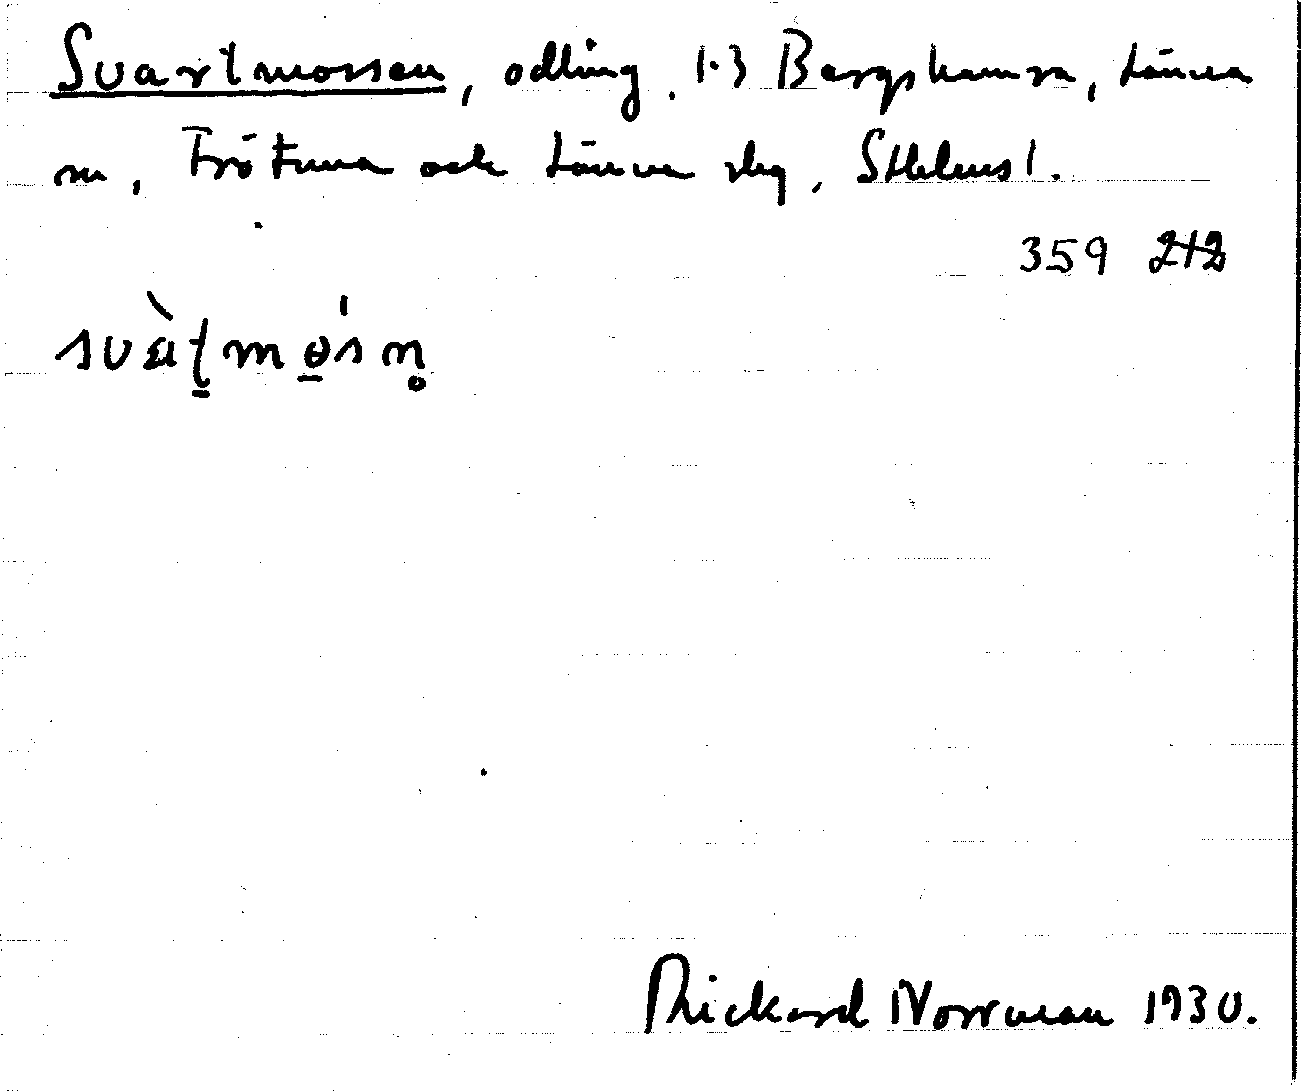 Svartmossen, odling, 1·3 Bergshamra, Länna
sn, Frötuna och Länna slg, Sthlms l.
359 212
svàt̠mo̠´sn̥
Rickard Norrman 1930.